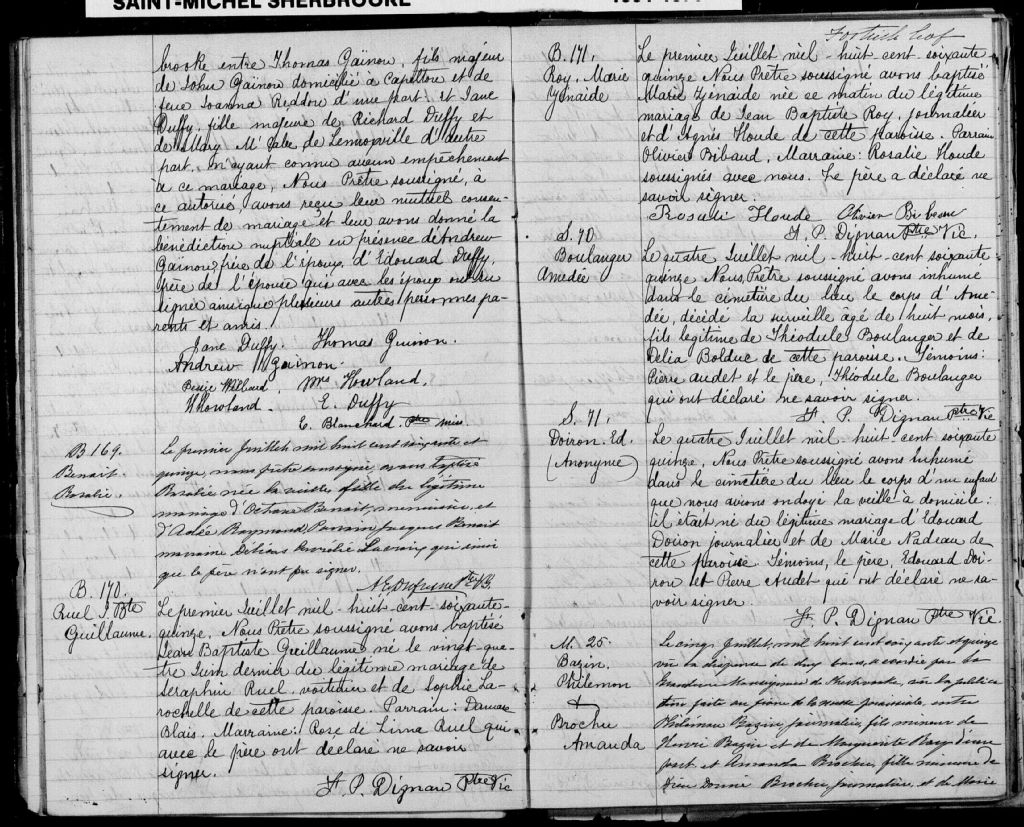 SAINT-MICHEL SHERBROOKE
brooke entre Thomas Gaïnon, fils majeur
de John Gaïnon domicilié à Capelton et de
feue Joanna Reddon d'une part; et Jane
Duffy, fille majeure de Richard Duffy et
de Mary Mc Cabe de Lennoxville d'autre
part, n'ayant connu aucun empêchement
à ce mariage, Nous Prêtre soussigné, à
ce autorisé, avons reçu leur mutuel consen-
tement de mariage et leur avons donné la
bénédiction nuptiale en présence d'Andrew
Gaïnon frère de l'époux, d'Edouard Duffy,
frère de l'épouse qui avec les époux ont
signé ainsi que plusieurs autres personnes pa-
rents et amis.
Jane Duffy. Thomas Guinon.
Andrew Gainon
Bessie Willard. Mrs Howland.
Howland. E. Duffy
E. Blanchard. Ptre miss.
B 169.
Benoit
Rosalie.
Le premier Juillet mil huit cent soixante et
quinze, nous prêtre soussigné, avons baptisé
Rosalie née la veille, fille du légitime
mariage d'Octave Benoit, menuisier et
d'Adée Raymond Parrain Jacques Benoit
marraine Delicas Aurélie qui ainsi
que le père n'ont pu signer.
B. 170.
Ruel J. Bte
Guillaume.
Le premier Juillet mil-huit-cent-soixante-
quinze, Nous Prêtre soussigné avons baptisé
Jean Baptiste Guillaume né le vingt-qua-
tre Juin dernier du légitime mariage de
Séraphin Ruel, voiturier et de Sophie La-
rochelle de cette paroisse. Parrain: Damase
Blais. Marraine: Rose de Lima Ruel qui
avec le père ont déclaré ne savoir
signer.
F. P. Dignan Ptre Vic
B. 171.
Roy, Marie
Zénaide
Le premier Juillet mil-huit-cent-soixante
quinze Nous Prêtre soussigné avons baptisé
Marie Zénaide née ce matin du légitime
mariage de Jean Baptiste Roy, journalier
et d'Agnès Houde de cette Paroisse. Parrain
Olivier Bibaud, Marraine: Rosalie Houde
soussignés avec nous. Le père a déclaré ne
savoir signer.
Rosalie Houde Olivier Bibeau
F. P. Dignan Ptre Vic.
S. 70
Boulanger
Amédée
Le quatre Juillet mil-huit-cent soixante
quinze, Nous, Prêtre soussigné avons inhumé
dans le cimetière du lieu le corps d'Amé-
dée, décédé la surveille âgé de huit mois,
fils légitime de Théodule Boulanger et de
Délia Bolduc de cette paroisse. Témoins:
Pierre Audet et le père, Théodule Boulanger
qui ont déclaré ne savoir signer.
F. P. Dignan Ptre Vic
S. 71.
Doiron. Ed.
(Anonyme)
Le quatre Juillet mil-huit cent soixante
quinze, Nous Prêtre soussigné avons Inhumé
dans le cimetière du lieu le corps d'un enfant
que nous avions ondoyé la veille à domicile:
il était né du légitime mariage d'Edouard
Doiron journalier et de Marie Nadeau de
cette paroisse Témoins, le père, Edouard Doi-
ron et Pierre Audet qui ont déclaré ne sa-
voir signer.
F. P. Dignan Ptre Vic.
M. 25
Bazin
Philémon
&
Brochu
Amanda
Le cinq Juillet, mil huit cent soixante et quinze
vu la dispense de deux bans, accordée par la
Grandeur Monseigneur de Sherbrooke, vu la publica-
tion faite au prône de la messe paroissiale, entre
Philémon Bazin, journalier, fils mineur de
Henri Bazin et de Marguerite Roy d'une
part et Amanda Brochu, fille mineure de
Dieu Donné Brochu, journalier, et de Marie